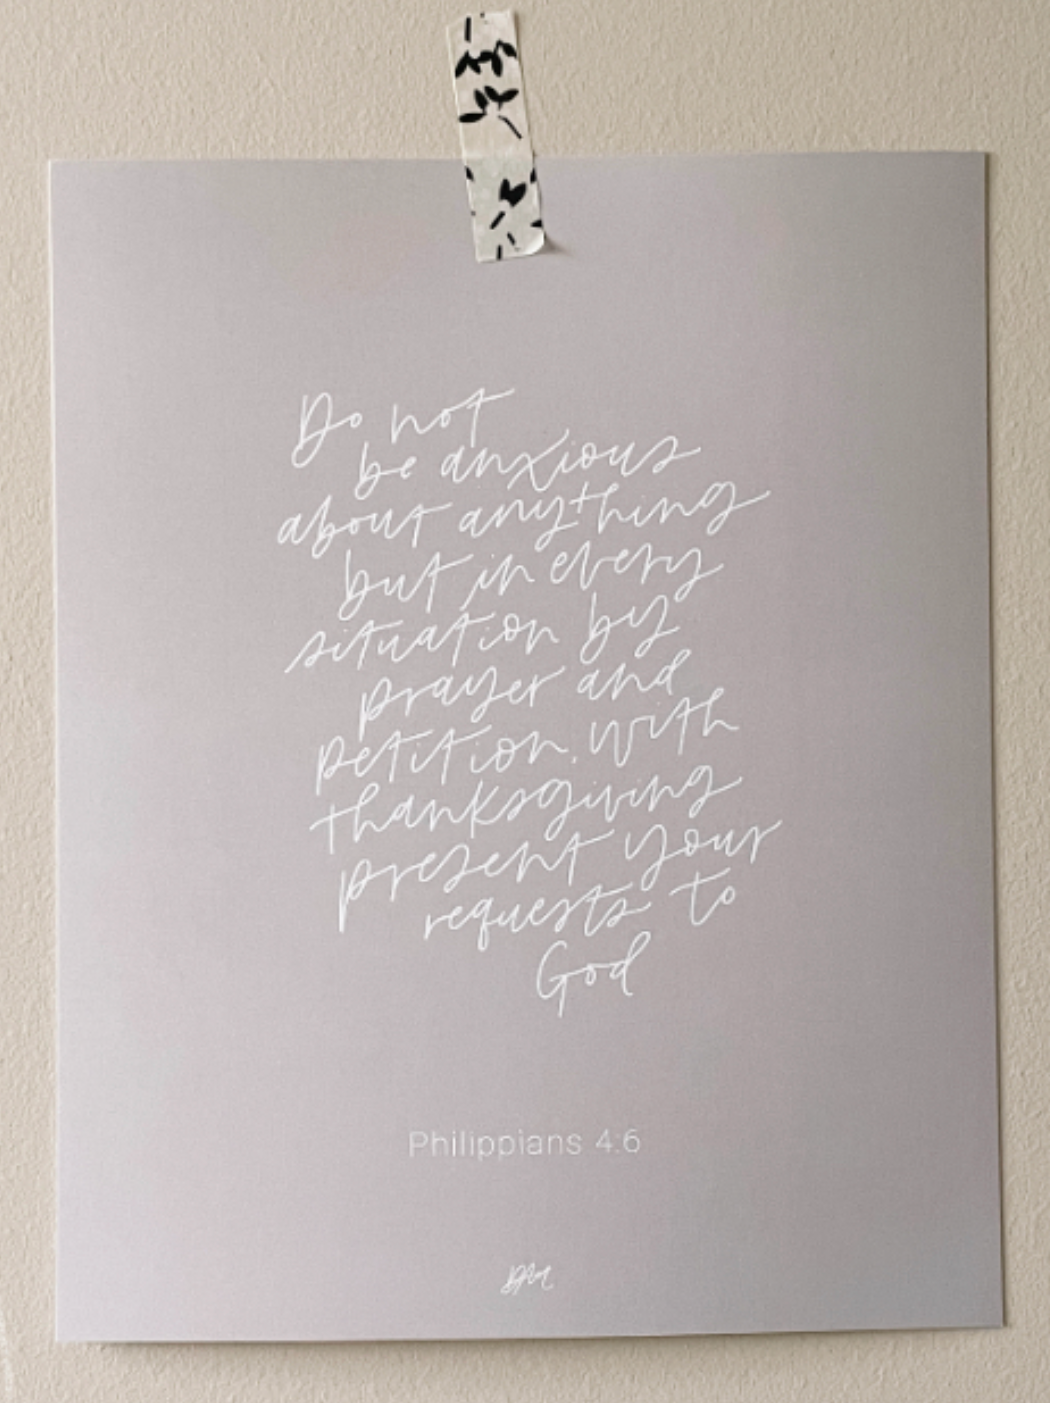 Do not
be anxious
about anything
but in every
situation by
prayer and
petition, with
thanksgiving
present your
requests to
God
Philippians 4:6